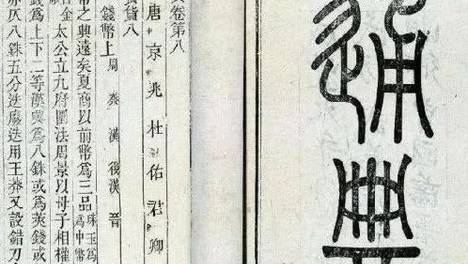 通典
卷第八
唐京兆杜佑君卿
貨八
錢幣上 周 秦 漢 後漢 晉
幣之興遠矣夏商以前幣爲三品珠玉爲爲中幣
金太公立九府圜法周景以母子相權
錢爲上下二等漢興爲八銖或爲莢錢或
赤仄八銖五分迭廢迭用王莽又設錯刀